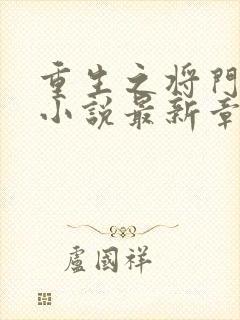 重生之将門
小說最新章
盧國祥